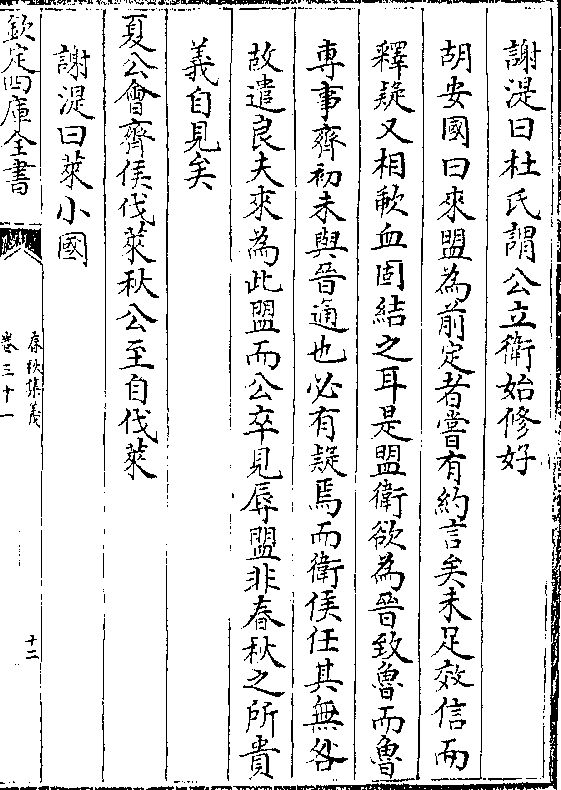 謝湜曰杜氏謂公立衛始修好
胡安國曰來盟為前定者嘗有約言矣未足效信而
釋疑又相歃血固結之耳是盟衛欲為晉致魯而魯
専事齊初未與晉通也必有疑焉而衛侯任其無咎
故遣良夫來為此盟而公卒見辱盟非春秋之所貴
義自見矣
夏公會齊侯伐萊秋公至自伐萊
謝湜曰萊小國
欽定四庫全書
春秋集義
卷三十一
十二